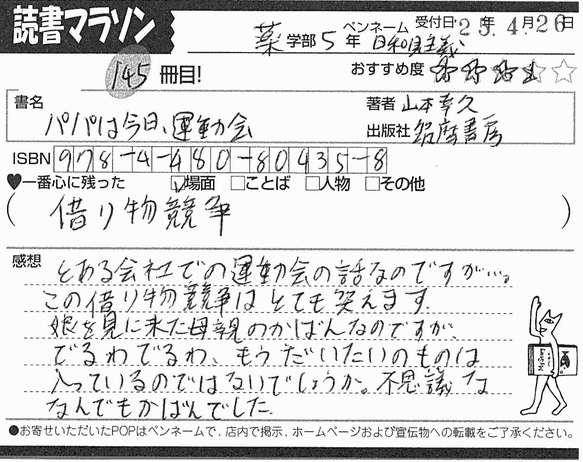 読書マラソン
薬学部5年 ペンネーム 日和見主義 受付日 '25年4月26日
145冊目! おすすめ度 ☆☆☆☆☆
書名 パパは今日、運動会
著者 山本幸久
出版社 筑摩書房
ISBN 978-4-480-80435-8
♥一番心に残った ☑場面 □ことば □人物 □その他
(借り物競争)
感想
とある会社での運動会の話なのですが…。
この借り物競争はとても笑えます。
娘を見に来た母親のかばんなのですが、
でるわでるわ、もうだいたいのものは
入っているのではないでしょうか。不思議な
なんでもかばんでした。
●お寄せいただいたPOPはペンネームで、店内で掲示、ホームページおよび宣伝物への転載をご了承ください。